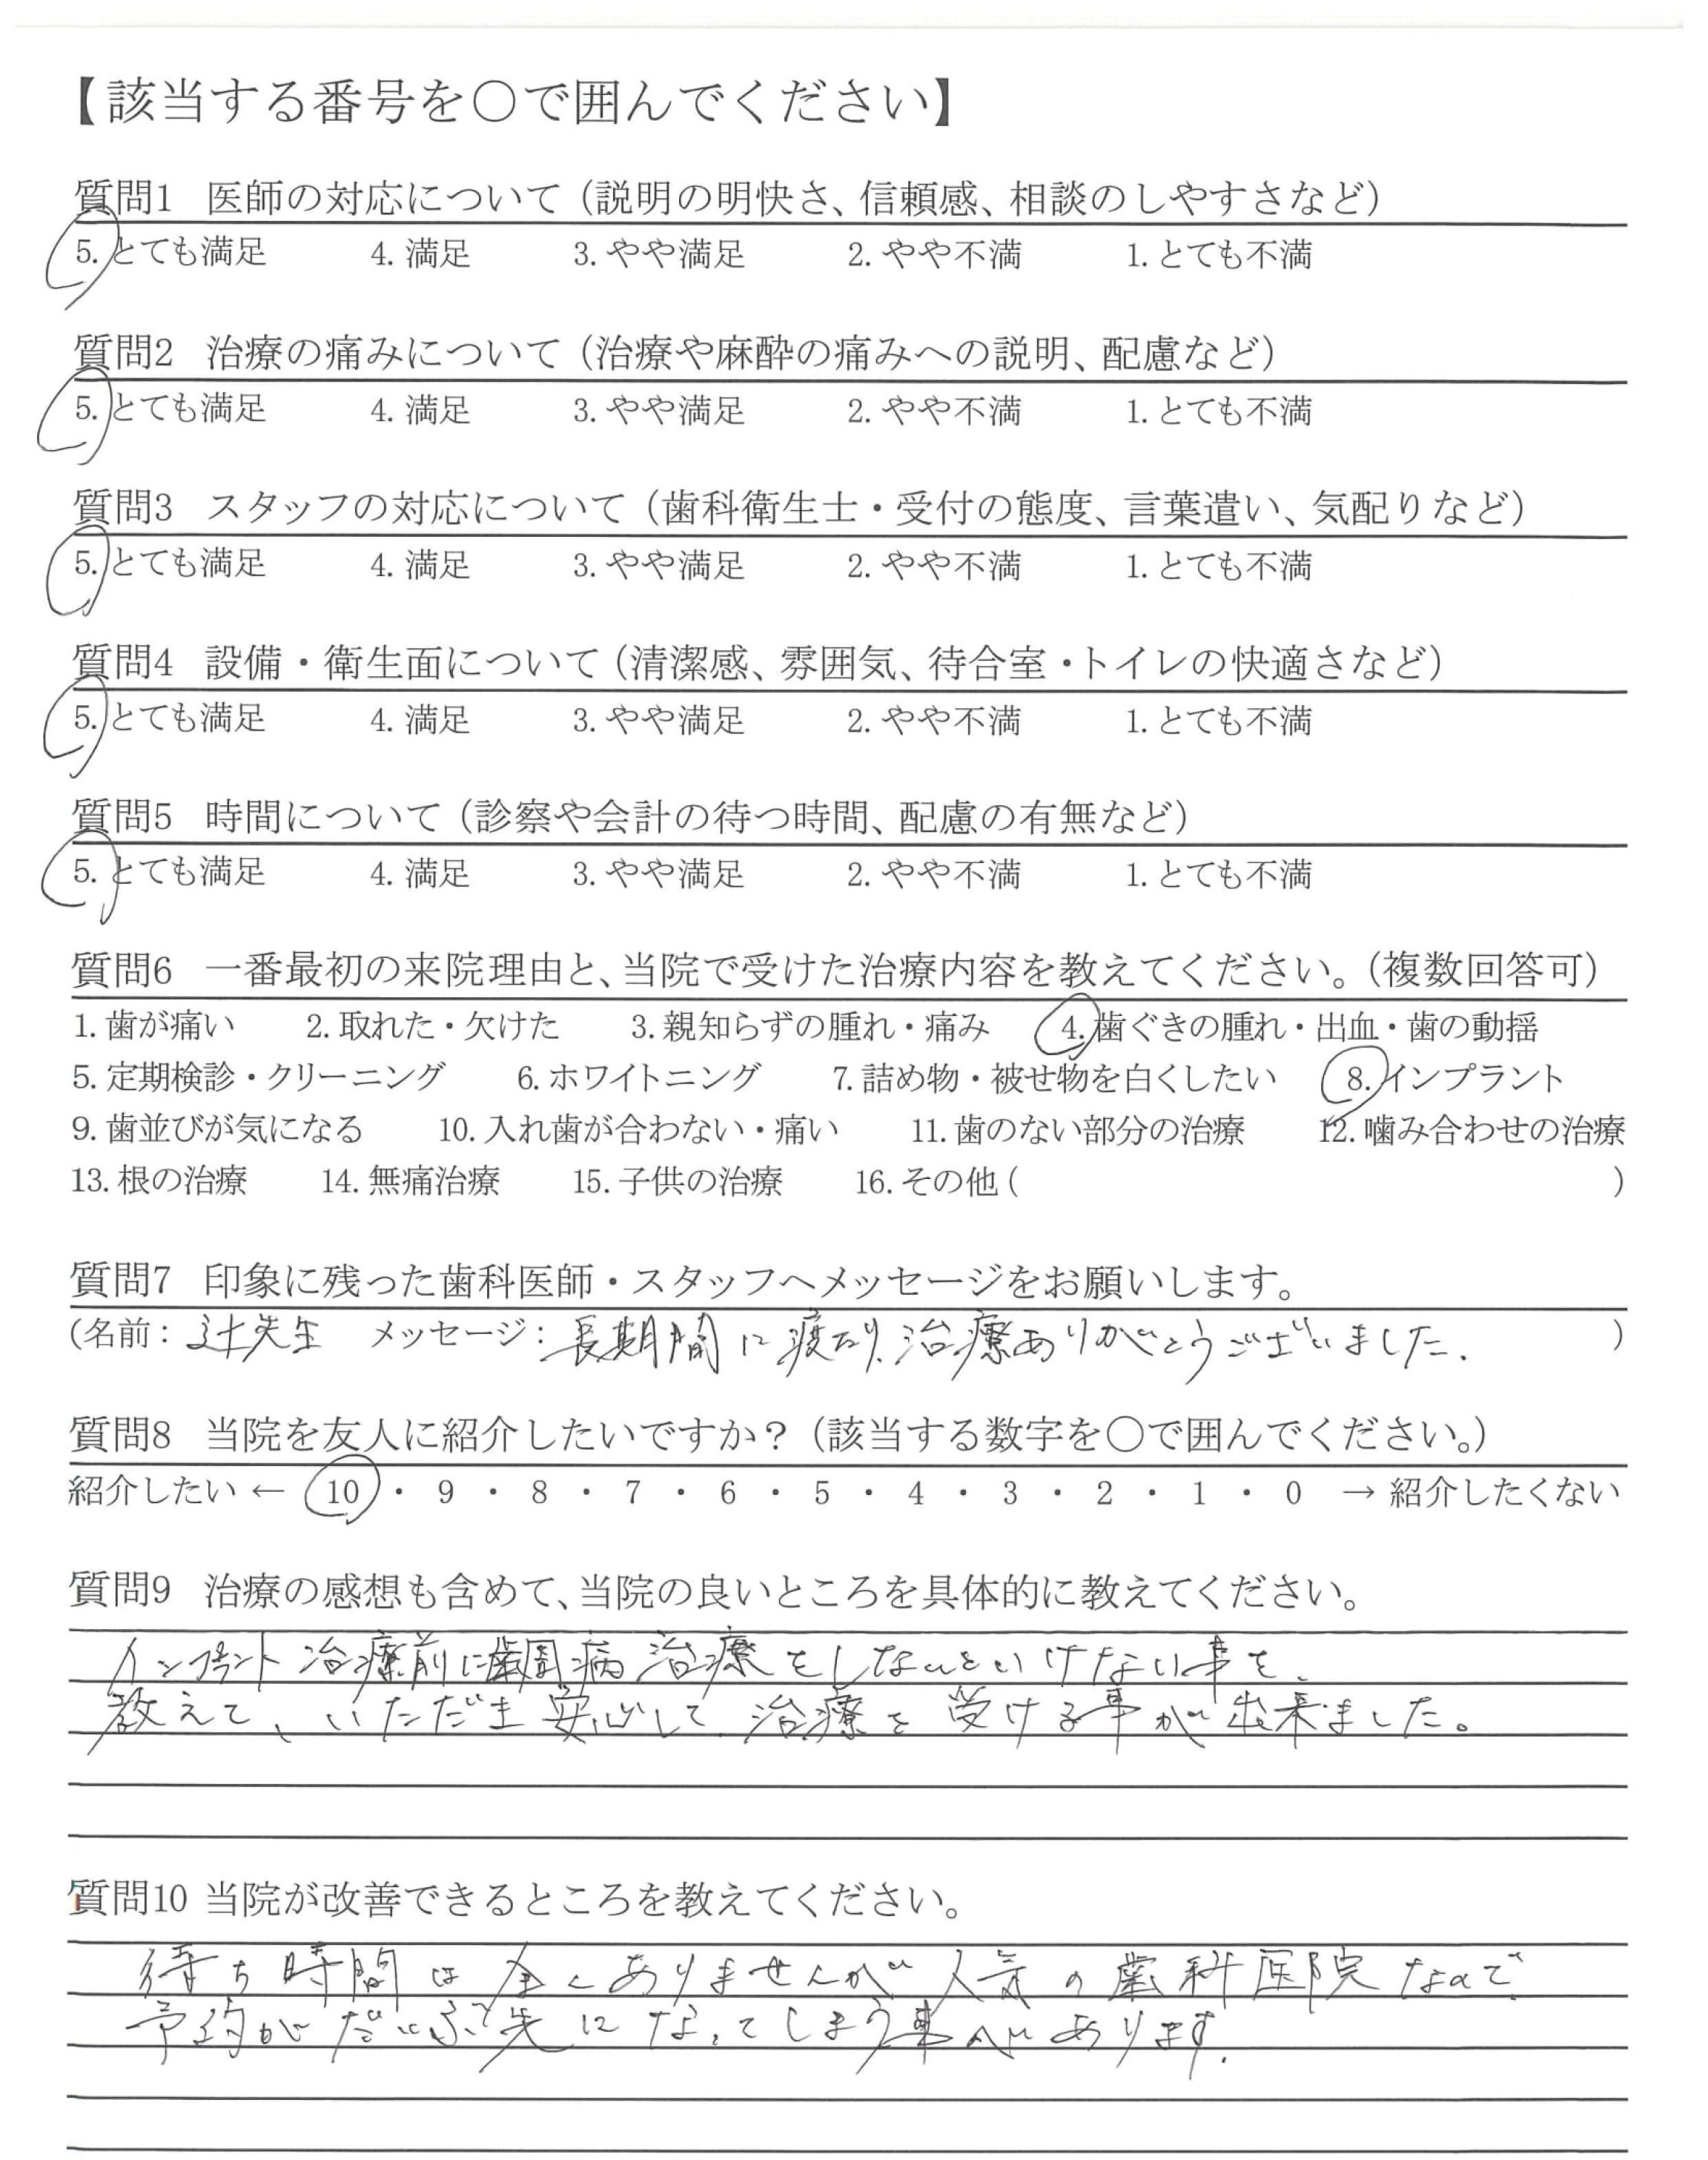 【該当する番号を〇で囲んでください】
質問1 医師の対応について（説明の明快さ、信頼感、相談のしやすさなど）
5. とても満足 4. 満足 3. やや満足 2. やや不満 1. とても不満
質問2 治療の痛みについて（治療や麻酔の痛みへの説明、配慮など）
5. とても満足 4. 満足 3. やや満足 2. やや不満 1. とても不満
質問3 スタッフの対応について（歯科衛生士・受付の態度、言葉遣い、気配りなど）
5. とても満足 4. 満足 3. やや満足 2. やや不満 1. とても不満
質問4 設備・衛生面について（清潔感、雰囲気、待合室・トイレの快適さなど）
5. とても満足 4. 満足 3. やや満足 2. やや不満 1. とても不満
質問5 時間について（診察や会計の待つ時間、配慮の有無など）
5. とても満足 4. 満足 3. やや満足 2. やや不満 1. とても不満
質問6 一番最初の来院理由と、当院で受けた治療内容を教えてください。（複数回答可）
1. 歯が痛い 2. 取れた・欠けた 3. 親知らずの腫れ・痛み 4. 歯ぐきの腫れ・出血・歯の動揺
5. 定期検診・クリーニング 6. ホワイトニング 7. 詰め物・被せ物を白くしたい 8. インプラント
9. 歯並びが気になる 10. 入れ歯が合わない・痛い 11. 歯のない部分の治療 12. 噛み合わせの治療
13. 根の治療 14. 無痛治療 15. 子供の治療 16. その他 ( )
質問7 印象に残った歯科医師・スタッフへメッセージをお願いします。
(名前：辻先生 メッセージ：長期間に渡たり、治療ありがとうございました。 )
質問8 当院を友人に紹介したいですか？（該当する数字を〇で囲んでください。）
紹介したい ← 10 ・ 9 ・ 8 ・ 7 ・ 6 ・ 5 ・ 4 ・ 3 ・ 2 ・ 1 ・ 0 → 紹介したくない
質問9 治療の感想も含めて、当院の良いところを具体的に教えてください。
インプラント治療前に歯周病治療をしないといけない事を、
教えて、いただき安心して治療を受ける事が出来ました。
質問10 当院が改善できるところを教えてください。
待ち時間は全くありませんが人気の歯科医院なので、
予約がだいぶ先になってしまう事があります。